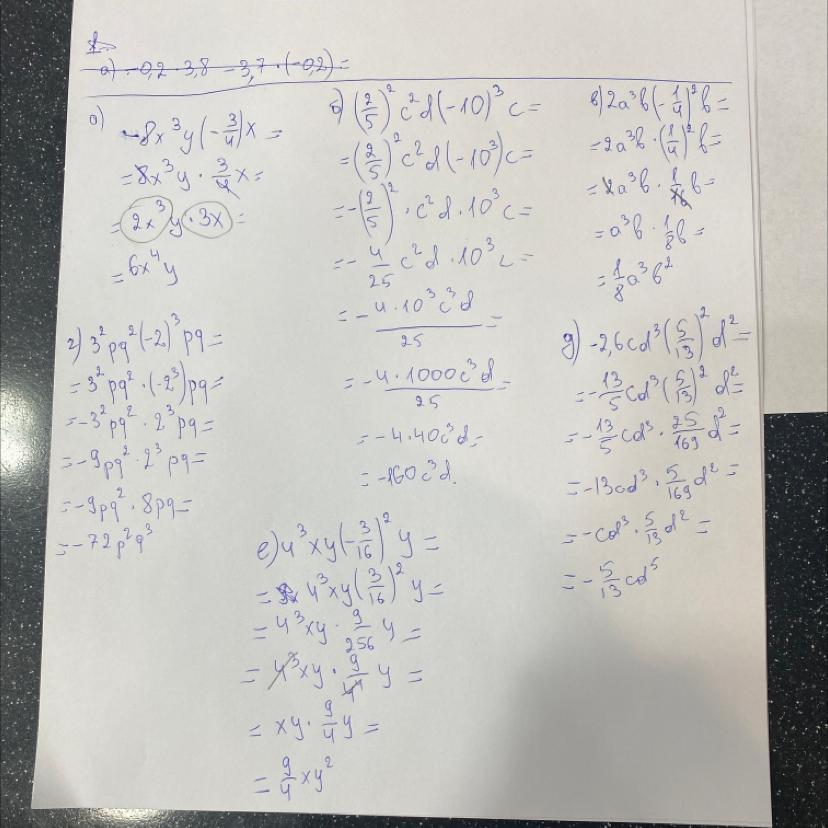 1.
a) -0,2 · 3,8 - 3,7 · (-0,2) =
а) -8x³y(-3/4)x =
= 8x³y · 3/4x =
= 2x³y · 3x =
= 6x⁴y
б) (2/5)²c²d(-10)³c =
= (2/5)²c²d(-10³)c =
= -(2/5)² · c²d · 10³c =
= -4/25c²d · 10³c =
= -4 · 10³c³d/25 =
= -4 · 1000c³d/25 =
= -4 · 40c³d =
= -160c³d.
в) 2a³b(-1/4)²b =
= 2a³b · (1/4)²b =
= 2a³b · 1/16b =
= a³b · 1/8b =
= 1/8a³b²
г) 3²pq²(-2)³pq =
= 3²pq² · (-2³)pq =
= -3²pq² · 2³pq =
= -9pq² · 2³pq =
= -9pq² · 8pq =
= -72p²q³
д) -2,6cd³(5/13)²d² =
= -13/5cd³(5/13)²d² =
= -13/5cd³ · 25/169d² =
= -13cd³ · 5/169d² =
= -cd³ · 5/13d² =
= -5/13cd⁵
е) 4³xy(-3/16)²y =
= 4³xy(3/16)²y =
= 4³xy · 9/256y =
= 4³xy · 9/4⁴y =
= xy · 9/4y =
= 9/4xy²